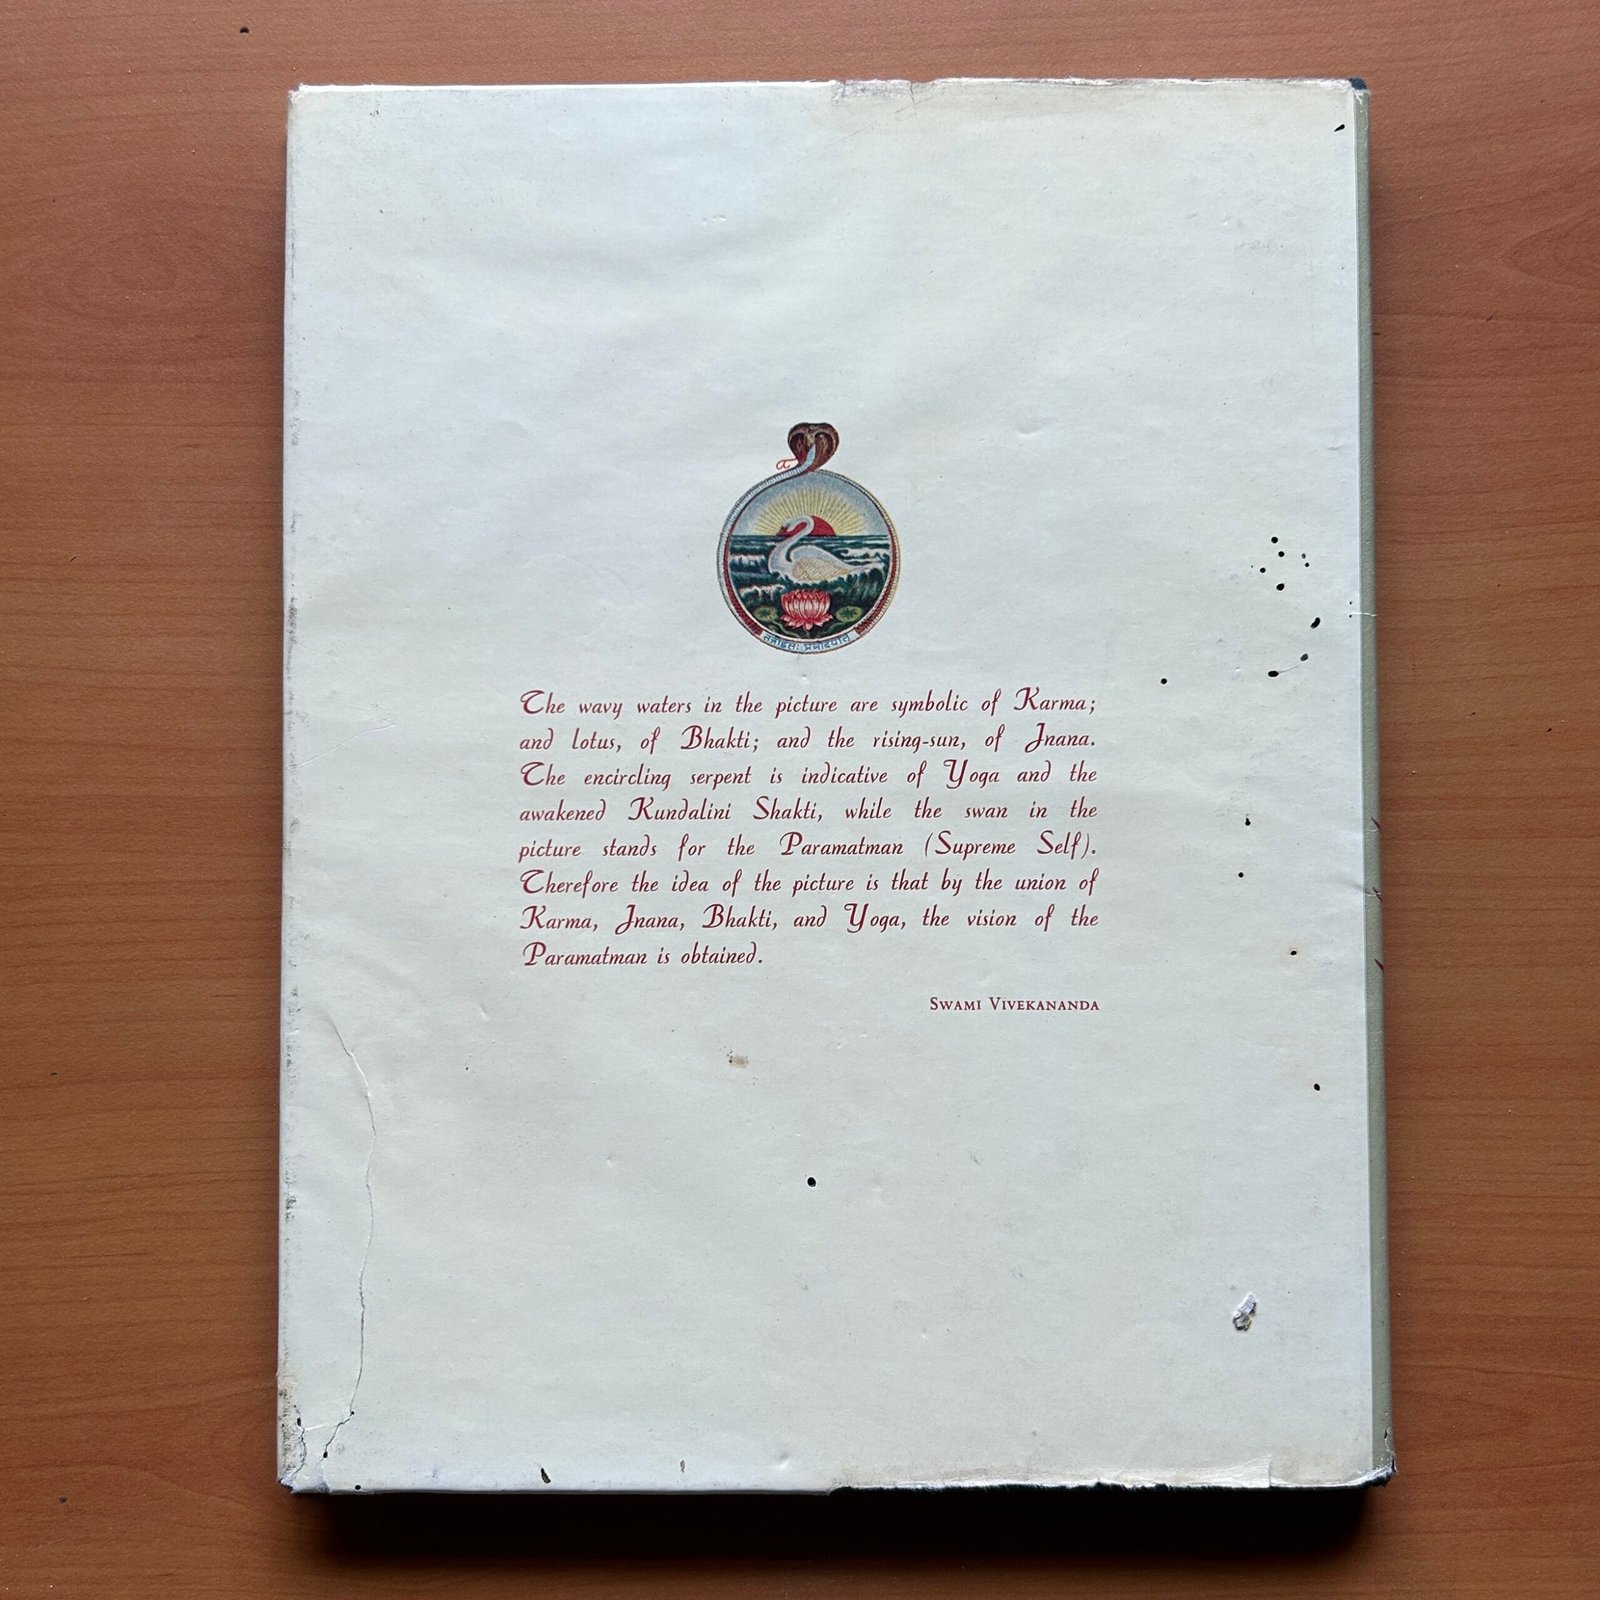 तन्नोहंसः प्रचोदयात्
The wavy waters in the picture are symbolic of Karma;
and lotus, of Bhakti; and the rising-sun, of Jnana.
The encircling serpent is indicative of Yoga and the
awakened Kundalini Shakti, while the swan in the
picture stands for the Paramatman (Supreme Self).
Therefore the idea of the picture is that by the union of
Karma, Jnana, Bhakti, and Yoga, the vision of the
Paramatman is obtained.
SWAMI VIVEKANANDA